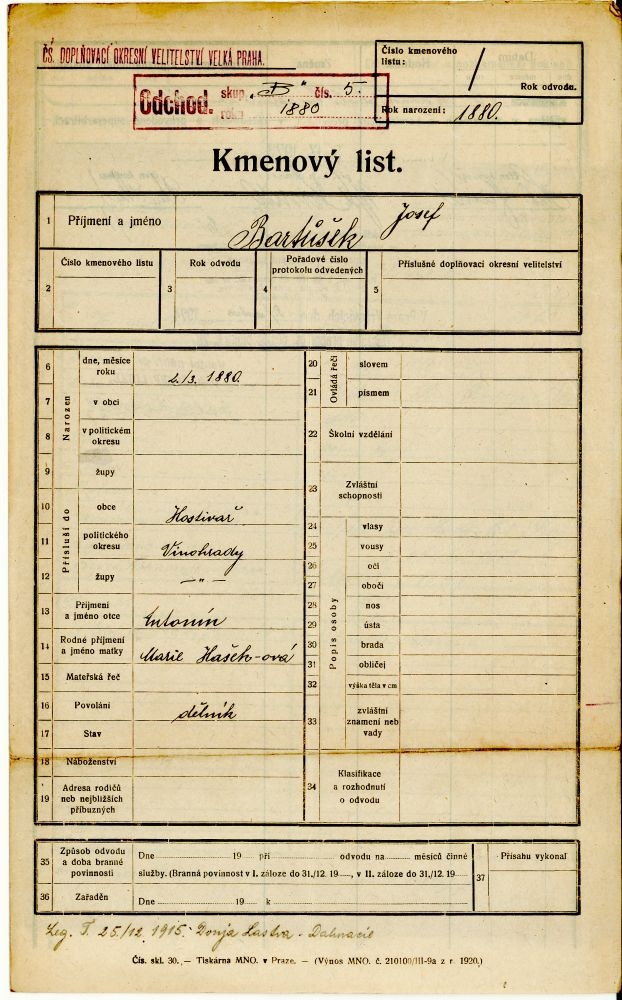 ČS. DOPLŇOVACÍ OKRESNÍ VELITELSTVÍ VELKÁ PRAHA.
Číslo kmenového
listu: /
Rok odvodu.
Odchod. skup. „B" čís. 5.
roku 1880
Rok narození: 1880.
Kmenový list.
1 Příjmení a jméno Bartůšek Josef
2 Číslo kmenového listu
3 Rok odvodu
4 Pořadové číslo
protokolu odvedených
5 Příslušné doplňovací okresní velitelství
Narozen
6 dne, měsíce
roku 2./3. 1880.
7 v obci
8 v politickém
okresu
9 župy
Přísluší do
10 obce Hostivař
11 politického
okresu Vinohrady
12 župy — „ —
13 Příjmení
a jméno otce Antonín
14 Rodné příjmení
a jméno matky Marie Hašek-ová
15 Mateřská řeč
16 Povolání dělník
17 Stav
18 Náboženství
19 Adresa rodičů
neb nejbližších
příbuzných
Ovládá řeči
20 slovem
21 písmem
22 Školní vzdělání
23 Zvláštní
schopnosti
Popis osoby
24 vlasy
25 vousy
26 oči
27 obočí
28 nos
29 ústa
30 brada
31 obličej
32 výška těla v cm
33 zvláštní
znamení neb
vady
34 Klasifikace
a rozhodnutí
o odvodu
35 Způsob odvodu
a doba branné
povinnosti
Dne 19 při odvodu na měsíců činné
služby. (Branná povinnost v I. záloze do 31./12. 19, v II. záloze do 31./12. 19
36 Zařaděn
Dne 19 k
37 Přísahu vykonal
Leg. T. 25/12. 1915. Donja Lastva - Dalmacie
Čís. skl. 30. — Tiskárna MNO. v Praze. — (Výnos MNO. č. 210100/III-9a z r. 1920.)